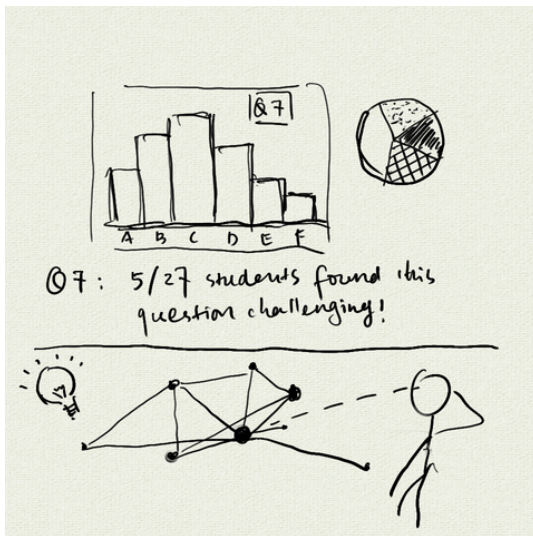 Q7
A B C D E F
Q7: 5/27 students found this
question challenging!